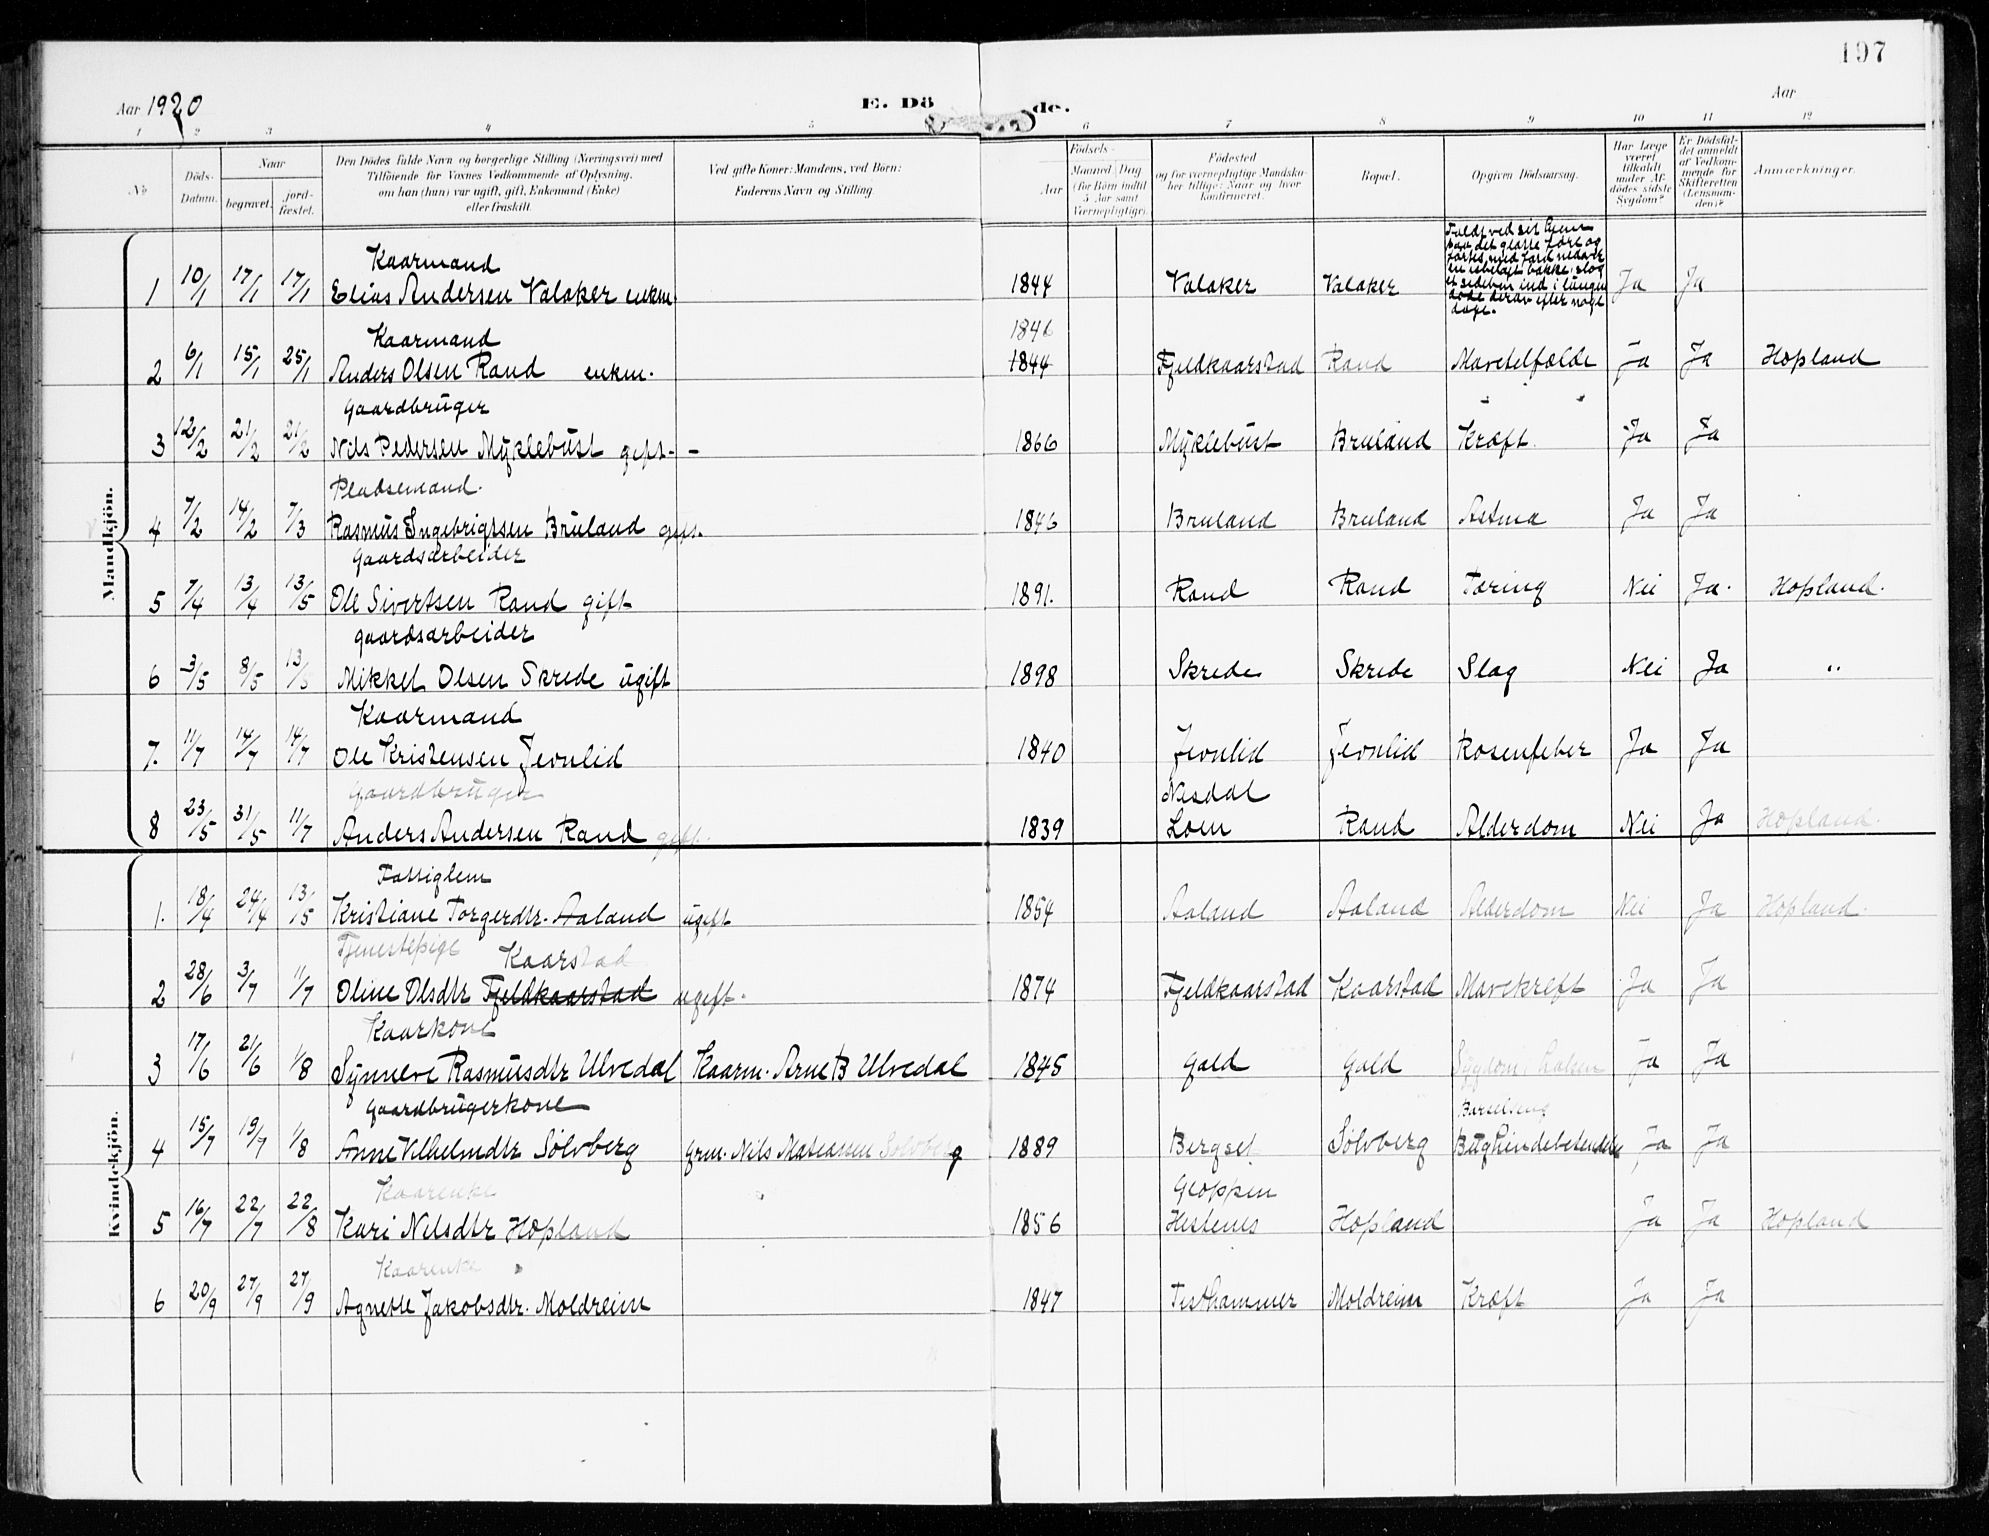 197
Aar 1920 E. Dö de. Aar
1 2 3 4 5 6 7 8 9 10 11 12
№ Döds-Datum. Naar begravet. jord-fæstet. Den Dödes fulde Navn og borgerlige Stilling (Næringsvei) med Tilföiende for Voxnes Vedkommende af Oplysning, om han (hun) var ugift, gift, Enkemand (Enke) eller fraskilt. Ved gifte Koner: Mandens, ved Börn: Faderens Navn og Stilling. Födsels- Aar Maaned Dag (for Börn indtil 5 Aar samt Værnepligtige). Födested og for værnepligtige Mandska-ber tillige: Naar og hvor konfirmeret. Bopæl. Opgiven Dödsaarsag. Har Læge været tilkaldt under Af-dödes sidste Sygdom? Er Dödsfal-det anmeldt af Vedkom-mende for Skifteretten (Lensman-den)? Anmærkninger.
Mandkjön.
Kaarmand
1 10/1 17/1 17/1 Elias Andersen Valaker enkm. 1844 Valaker Valaker Ja Ja
Kaarmand 1846
2 6/1 15/1 25/1 Anders Olsen Rand enkm. 1844 Fjeldkaarstad Rand Ja Ja Hopland
Gaardbruger
3 12/2 21/2 21/2 Nils Pedersen Myklebust gift - 1866 Myklebust Bruland Kræft. Ja Ja
Pladsemand.
4 7/2 14/2 7/3 Rasmus Ingebrigtsen Bruland gift. 1846 Bruland Bruland Astma Ja Ja
Gaardsarbeider
5 7/4 13/4 13/5 Ole Sivertsen Rand gift 1891. Rand Rand Tæring Nei Ja. Hopland.
Gaardsarbeider
6 3/5 8/5 13/5 Mikkel Olsen Skrede ugift 1898 Skrede Skrede Slag Nei Ja "
Kaarmand
7. 11/7 14/7 14/7 Ole Kristensen Jevnlid 1840 Jevnlid Jevnlid Rosenfeber Ja Ja
Gaardbruger Nesdal
8 23/5 31/5 11/7 Anders Andersen Rand gift. 1839 Lom Rand Alderdom Nei Ja Hopland.
Kvindekjön.
Fattiglem
1. 18/4 24/4 13/5 Kristiane Torgerdtr. Aaland ugift 1854 Aaland Aaland Alderdom Nei Ja Hopland.
Tjenestepige Kaarstad
2 28/6 3/7 11/7 Oline Olsdtr Fjeldkaarstad ugift. 1874 Fjeldkaarstad Kaarstad Mavekreft Ja Ja
Kaarkone
3 17/6 21/6 1/8 Synneve Rasmusdtr Ulvedal Kaarm. Arne B Ulvedal 1845 Gald Gald Ja Ja
Gaardbrugerkone Barselseng
4 15/7 19/7 1/8 Anne Vilhelmdtr Sölvberg Grm. Nils Matiassen Solvberg 1889 Bergset Sölvberg Ja Ja
Kaarenke Gloppen
5 16/7 22/7 22/8 Kari Nilsdtr Hopland 1856 Hestenes Hopland Ja Ja Hopland
Kaarenke
6 20/9 27/9 27/9 Agnette Jakobsdtr. Moldreim 1847 Tisthammer Moldreim Kræft Ja Ja